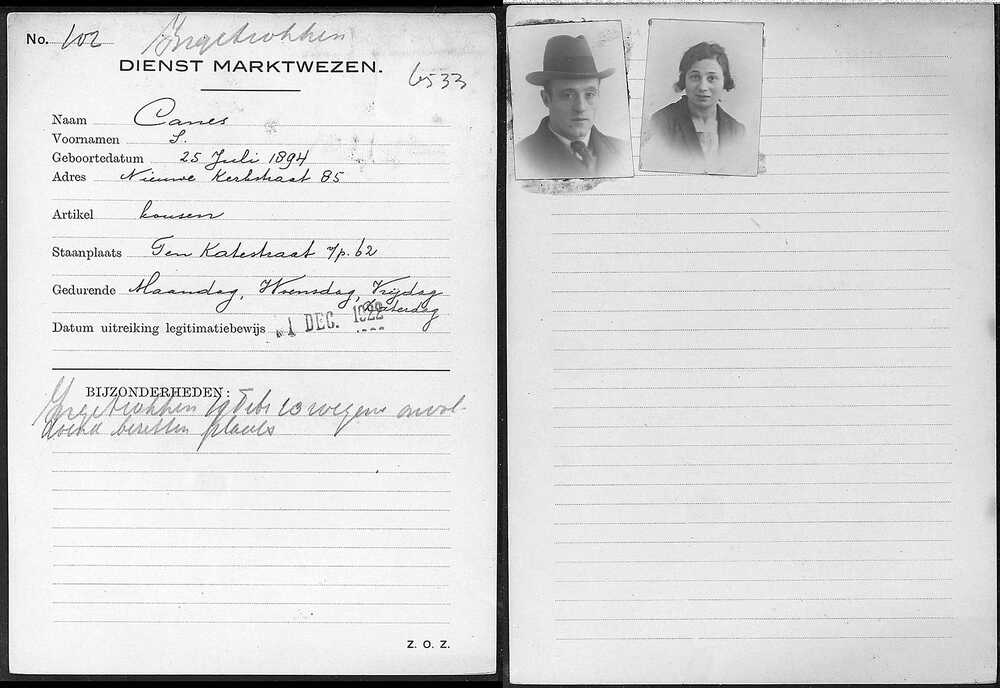 No. 102 Ingetrokken
DIENST MARKTWEZEN.
6533
Naam Canes
Voornamen S.
Geboortedatum 25 Juli 1894
Adres Nieuwe Kerkstraat 85
Artikel kousen
Staanplaats Ten Katestraat v/p. 62
Gedurende Maandag, Woensdag, Vrijdag
Zaterdag
Datum uitreiking legitimatiebewijs 1 DEC. 1922
BIJZONDERHEDEN:
Ingetrokken 19 Febr 23 wegens onvol-
doend bezetten plaats
Z. O. Z.